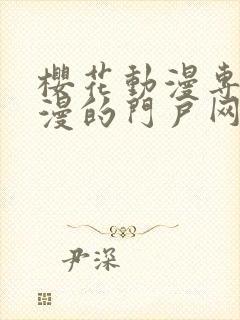 櫻花動漫專
漫的門戶网
尹深